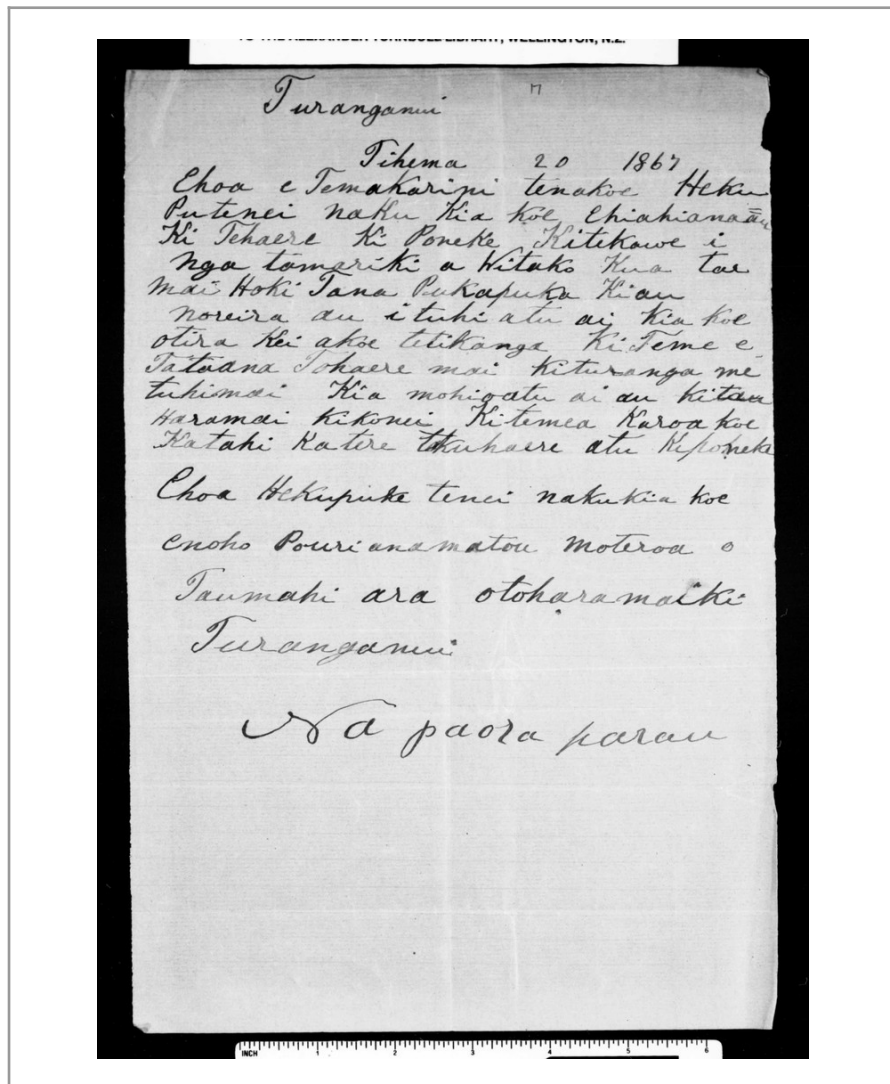 TO THE ALEXANDER TURNBULL LIBRARY, WELLINGTON, N.Z.
Turanganui
Tihema 20 1867
Ehoa e Temakarini tenakoe Heku
Putenei naku Kia koe Ehiahiana au
Ki Tehaere Ki Poneke Kitekawe i
Nga tamariki a Witako Kua tae
mai Hoki Tana Pukapuka Kiau
noreira au i tuhi atu ai Kia koe
otira Kei akoe tetikanga Ki Teme e
Tataana Tohaere mai kituranga me
tuhimai Kia mohioatu ai au kitau
Haramai kikonei Kitemea Karoa koe
Katahi Ka tere takuhaere atu Kiponeke
Ehoa Hekupuke tenei nakukia koe
enoho Pouri ana matou moteroa o
Taumahi ara otoharamaiki
Turanganui
Na paora parau
INCH 1 2 3 4 5 6